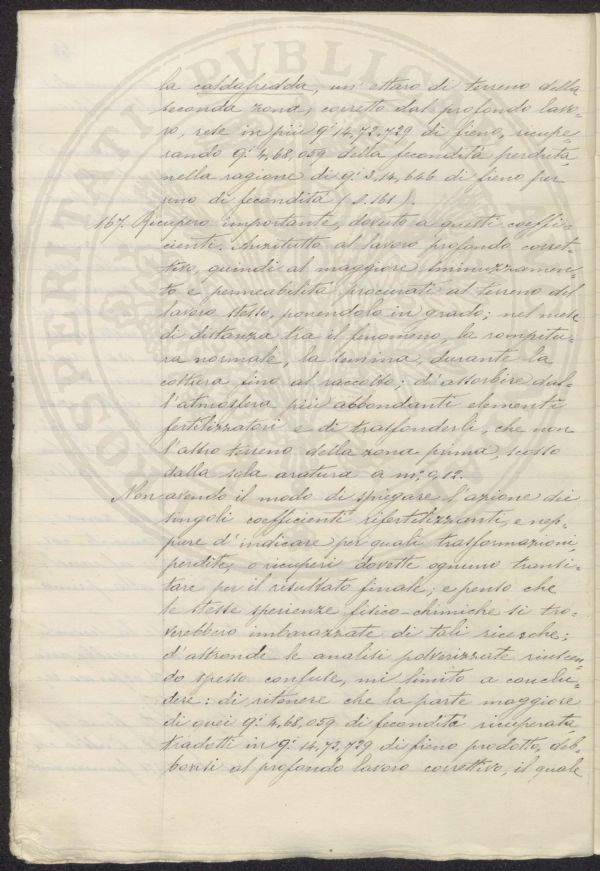 la caldafredda, un' ettaro di terreno della
seconda zona, corretto dal profondo lavo-
ro, rese in più q.i 14,72,729 di fieno, ricupe-
rando q.i 4,68,059 della fecondità perduta,
nella ragione di q.i 3,14,646 di fieno per
uno di fecondità (§.161).
167. Ricupero importante, dovuto a questi coeffi-
cienti. Anzitutto al lavoro profondo corret-
tivo, quindi al maggiore sminuzzamen-
to e permeabilità procurati al terreno del
lavoro stesso, ponendolo in grado; nel mese
di distanza tra il fenomeno, la rompitu-
ra normale, la semina, durante la
coltura fino al raccolto; d'assorbire dal-
l'atmosfera più abbondanti elementi
fertilizzatori e di trasfonderli, che non
l'altro terreno della zona prima, scosso
dalla sola aratura a m. 0,12.
Non avendo il modo di spiegare l'azione dei
singoli coefficienti rifertilizzanti, e nep-
pure d'indicare per quali trasformazioni,
perdite, o ricuperi dovette ognuno transi-
tare per il risultato finale; e penso che
le stesse sperienze fisico-chimiche si tro-
verebbero imbarazzate di tali ricerche;
d'altronde le analisi polverizzate riuscen-
do spesso confuse, mi limito a conclu-
dere: di ritenere che la parte maggiore
di quei q.i 4,68,059 di fecondità ricuperata,
tradotti in q.i 14,72,729 di fieno prodotto, deb-
bonsi al profondo lavoro correttivo, il quale
PVBLIC
PROSPERITATI